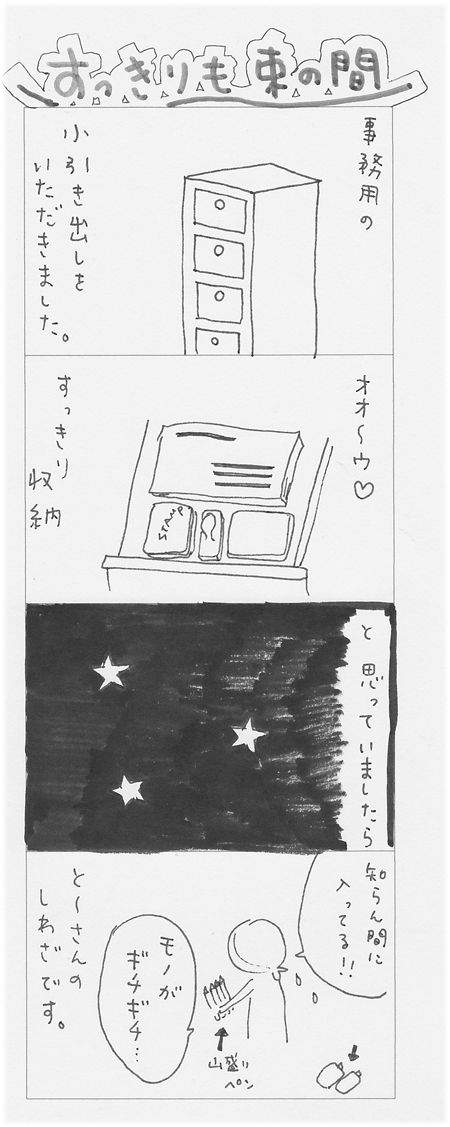 すっきりも束の間
事務用の
小引き出しを
いただきました。
オオ〜ウ♡
STAMP
すっきり
収納
と思っていましたら
知らん間に
入ってる!!
モノが
ギチギチ…
山盛り
ペン
と〜さんの
しわざです。